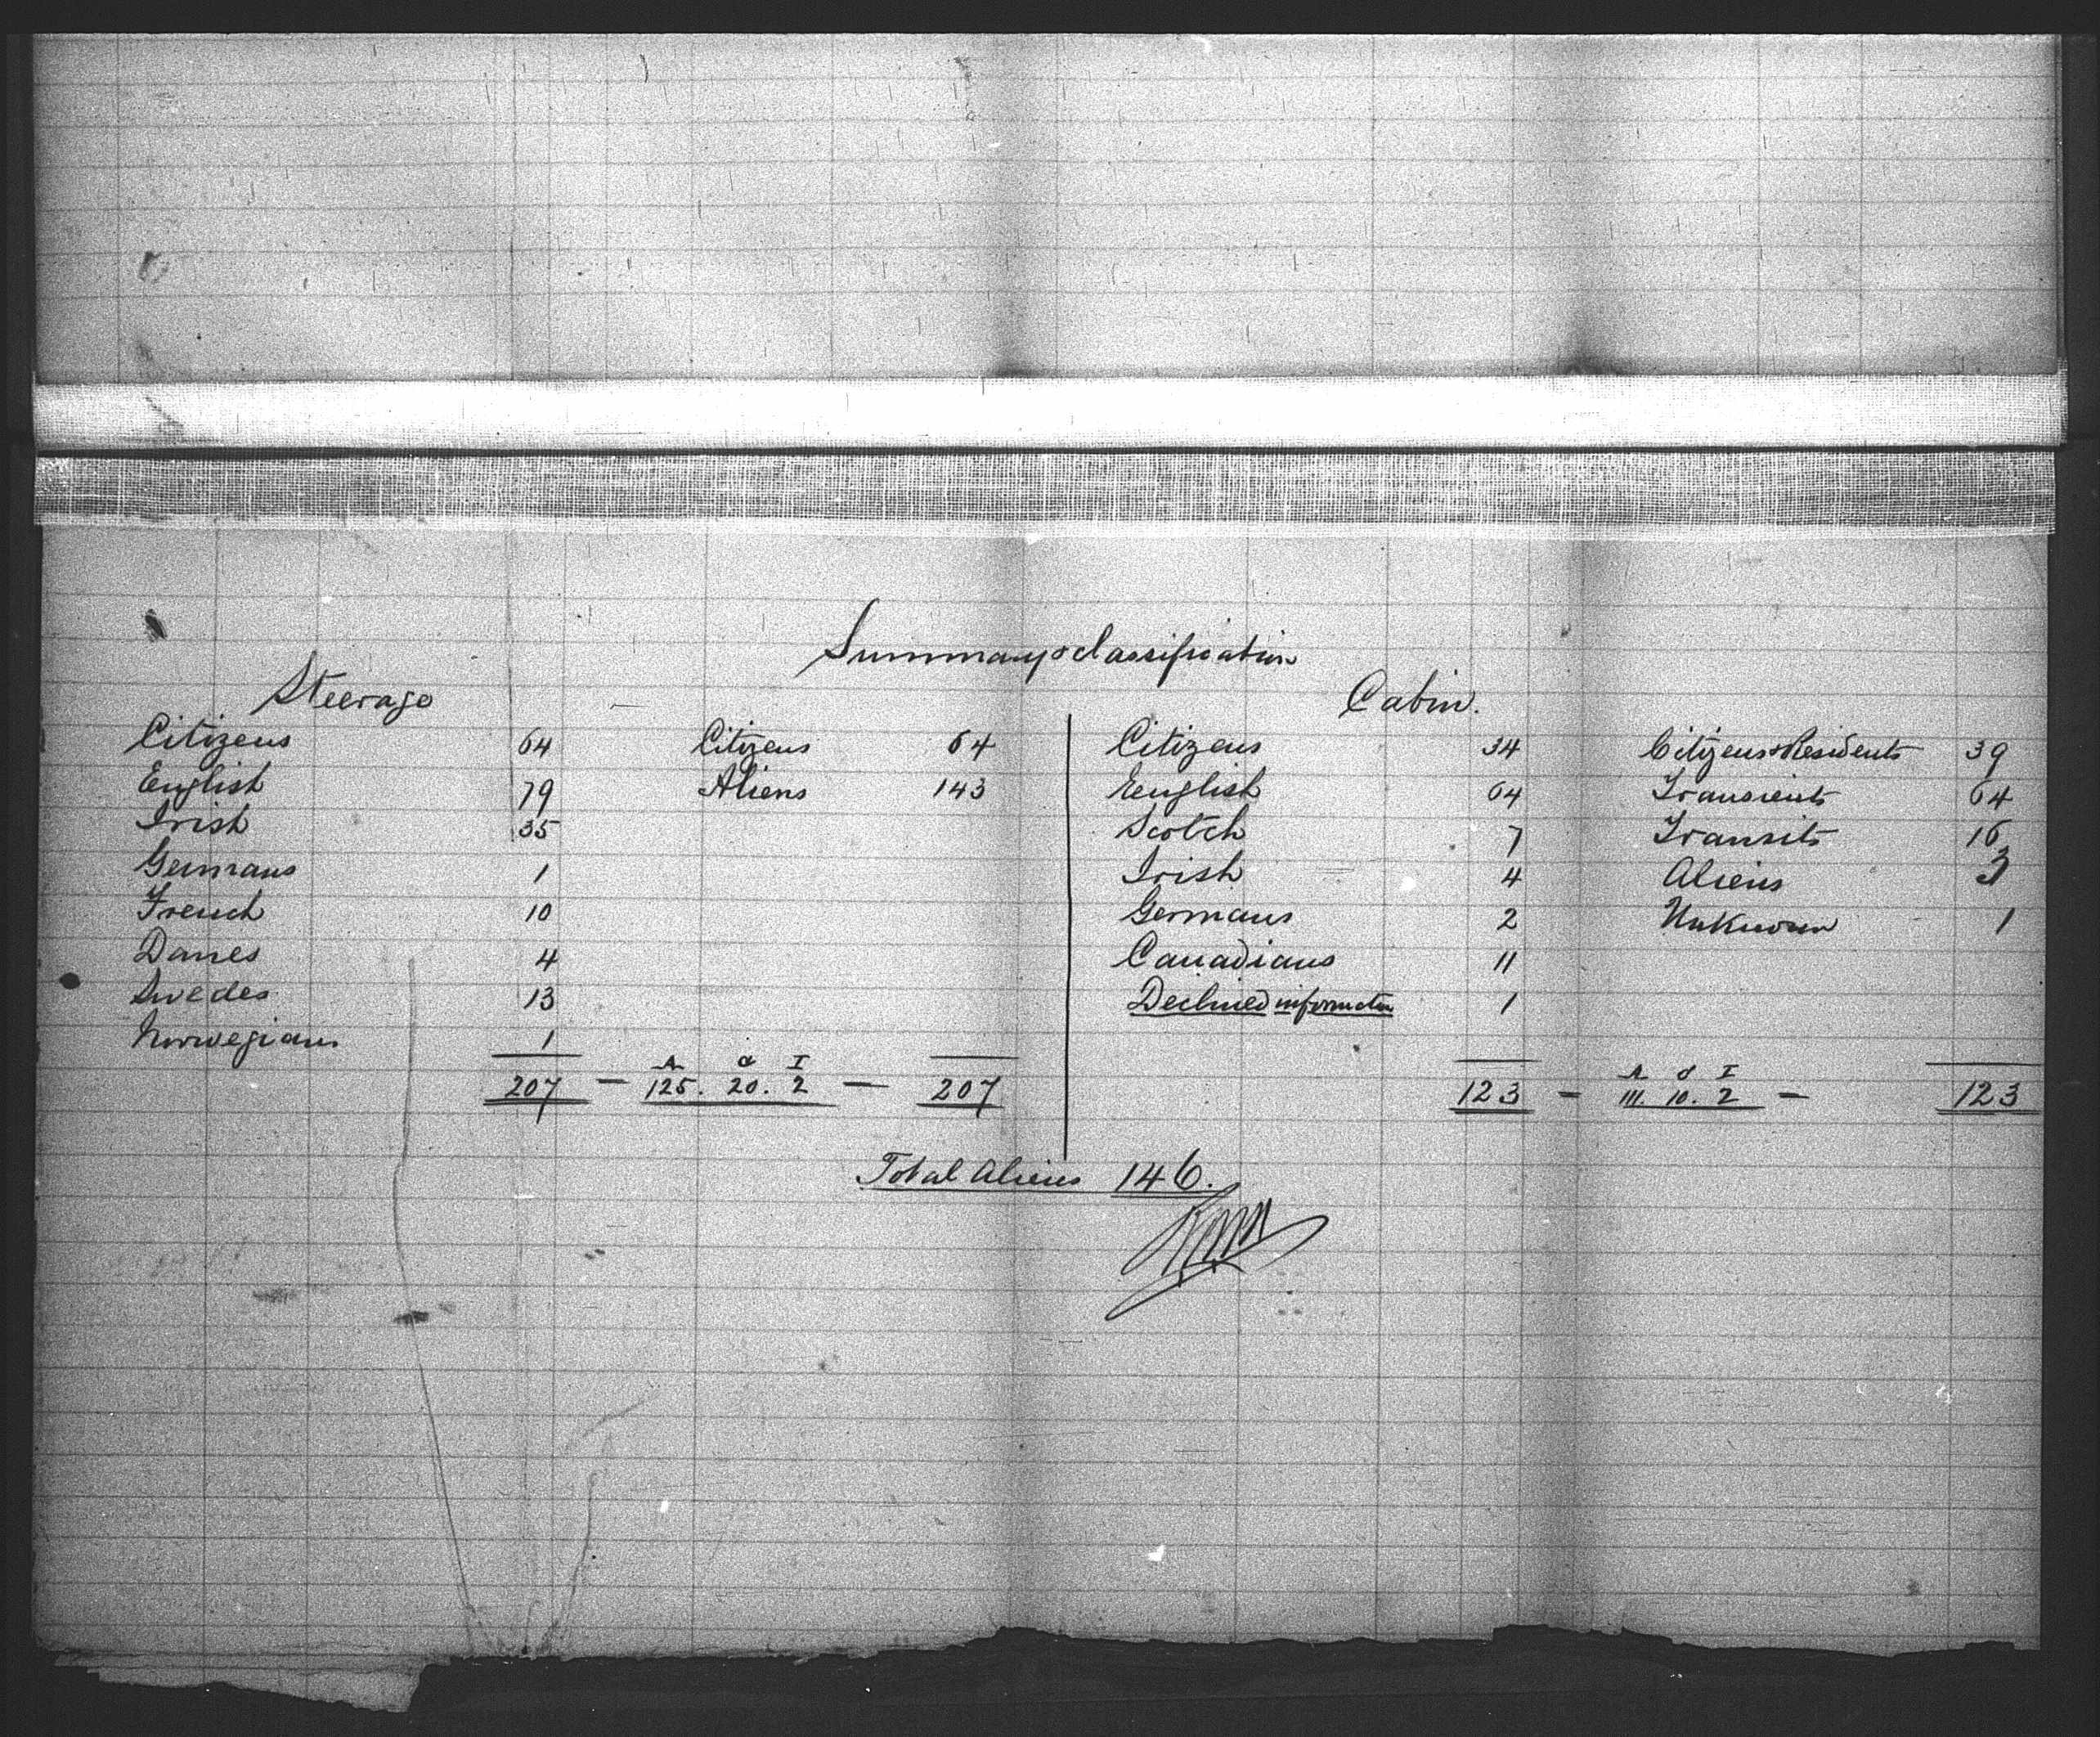 Summary & classification
Steerage
Cabin.
Citizens 64 Citizens 64 Citizens 34 Citizens & Residents 39
English 79 Aliens 143 English 64 Transients 64
Irish 35 Scotch 7 Transits 16
Germans 1 Irish 4 Aliens 3
French 10 Germans 2 Unknown 1
Danes 4 Canadians 11
Swedes 13 Declined information 1
Norwegians 1
A c I A c I
207 – 185. 20. 2 – 207 123 – 111. 10. 2 – 123
Total Aliens 146.